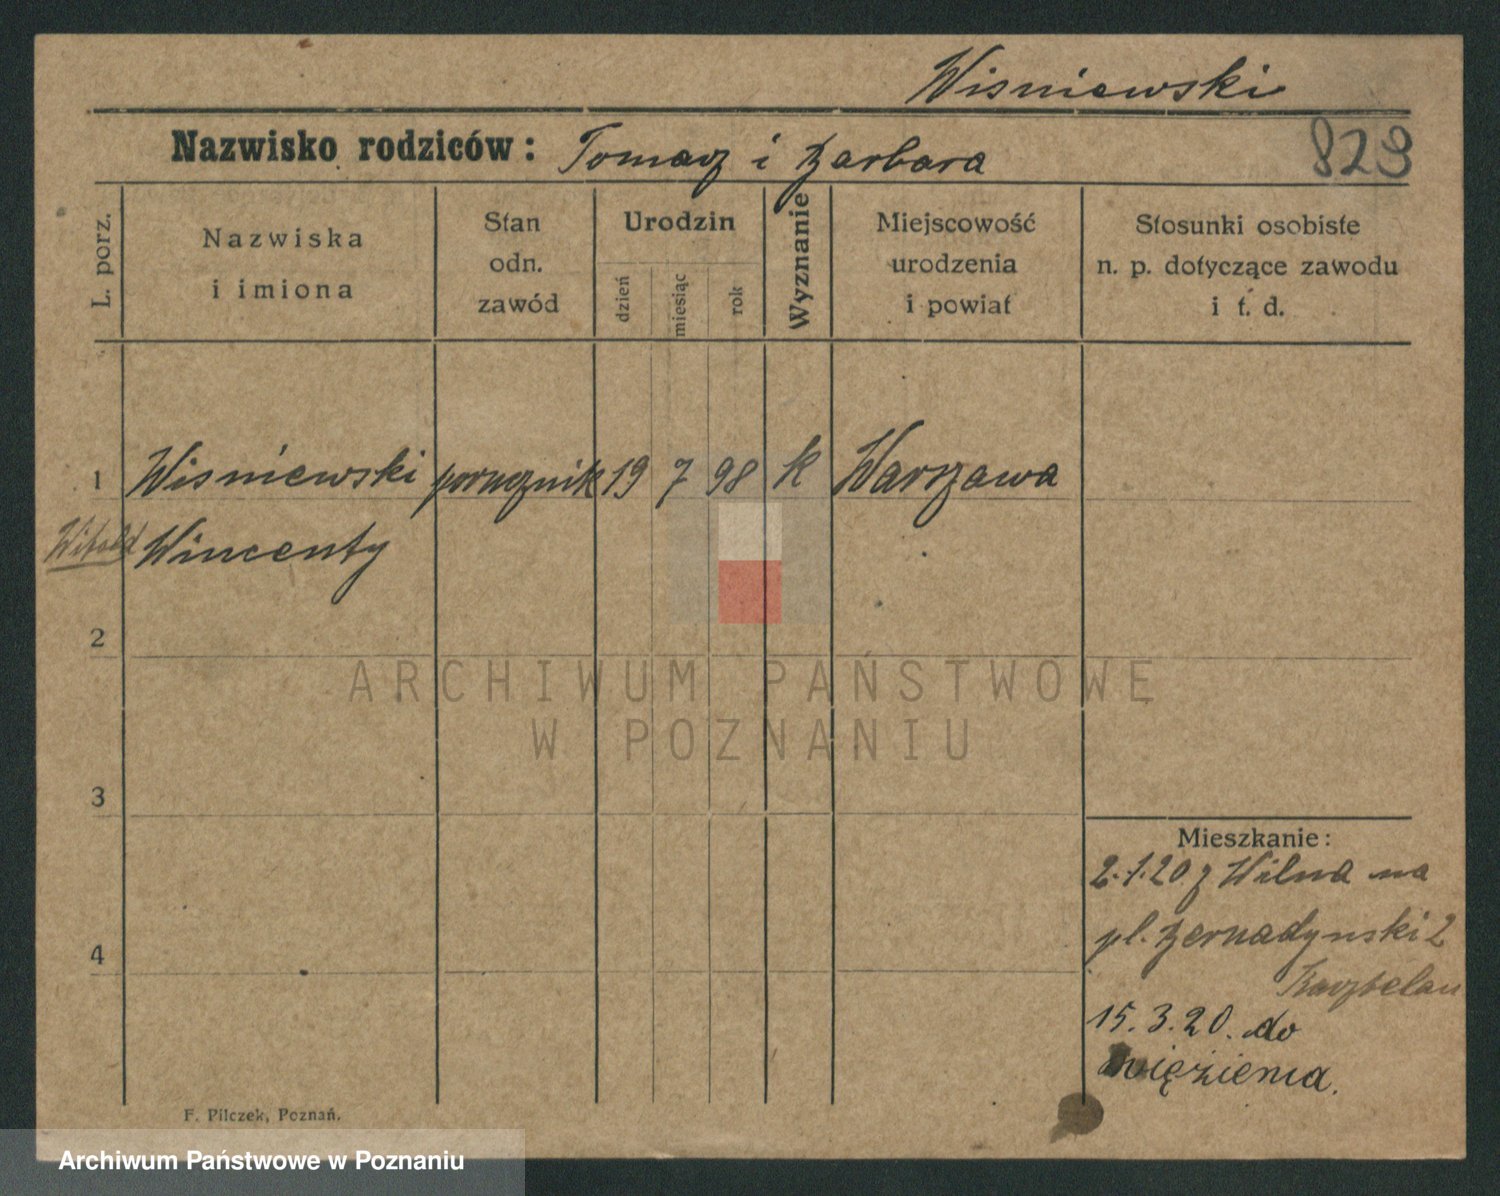 Wisniewski
Nazwisko rodziców: Tomasz i Barbara
829
L. porz.
Nazwiska
i imiona
Stan
odn.
zawód
Urodzin
dzień
miesiąc
rok
Wyznanie
Miejscowość
urodzenia
i powiat
Stosunki osobiste
n. p. dotyczące zawodu
i t. d.
1 Wisniewski porucznik 19 7 98 k Warszawa
Witold Wincenty
2
ARCHIWUM PAŃSTWOWE
W POZNANIU
3
Mieszkanie:
2.1.20 z Wilna na
pl. Bernadynski 2
4
15.3.20. do
więzienia.
F. Pilczek, Poznań.
Archiwum Państwowe w Poznaniu